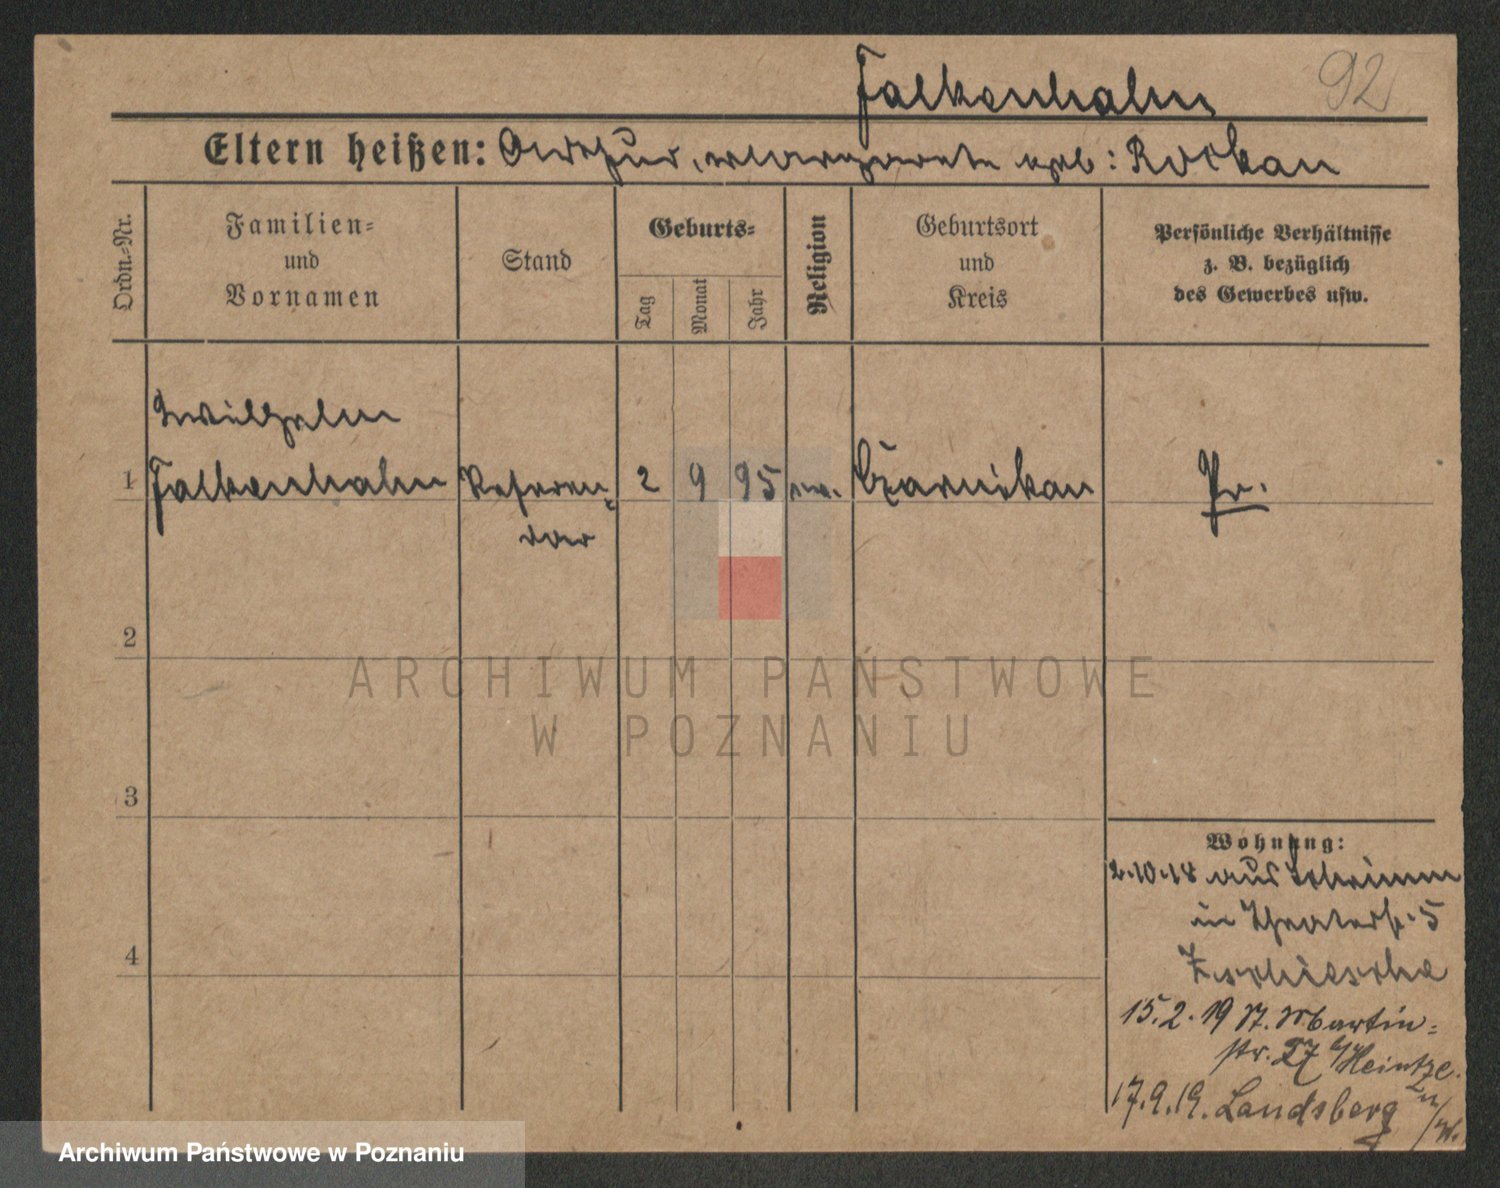 Falkenhahn
92
Eltern heißen: Arthur, Margarete geb: Rockau
Ordn.-Nr.
Familien-
und
Vornamen
Stand
Geburts-
Tag
Monat
Jahr
Religion
Geburtsort
und
Kreis
Persönliche Verhältnisse
z. B. bezüglich
des Gewerbes usw.
Wilhelm
1 Falkenhahn Referen- 2 9 95 ev. Czarnikau Pr.
dar
2
3
4
Wohnung:
2.10.18 aus
in Theaterst. 5
Zschiesche
15.2.19 St. Martin-
str. 27 b/Heintze.
17.9.19. Landsberg a/W.
ARCHIWUM PAŃSTWOWE
W POZNANIU
Archiwum Państwowe w Poznaniu